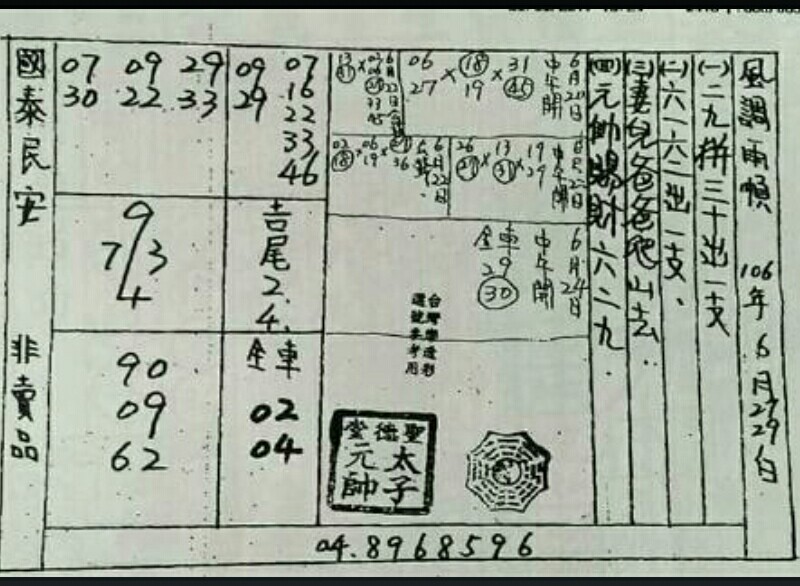 風調雨順 106年6月27 29白
(一)二九拼三十出一支
(二)六一六二出一支.
(三)妻兒爸爸爬山去.
(四)元帥賜財六二九
6月20日
中午開
06 × 18 × 31
27 19 45
6月22日
中午開
26 13 19
29
02 06
18 × 19 36
6月22日
6月24日
中午開
全車
29
30
台灣樂透彩
選號參考用
聖德堂
太子
元帥
09 07
29 16
22
33
46
吉尾
2.
4.
全車
02
04
07 09 29
30 22 33
9
7/3
4
90
09
62
國泰民安 非賣品
04.8968596